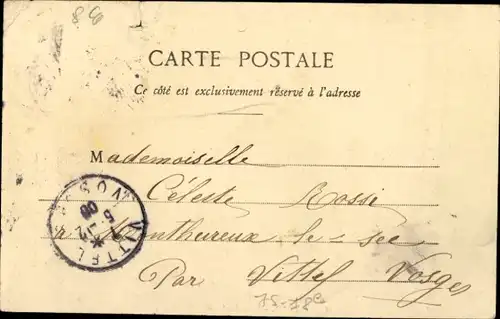 CARTE POSTALE
Ce côté est exclusivement réservé à l'adresse
Mademoiselle
Céleste Rossi
à Monthureux-le-sec
Par Vittel Vosges
VITTEL